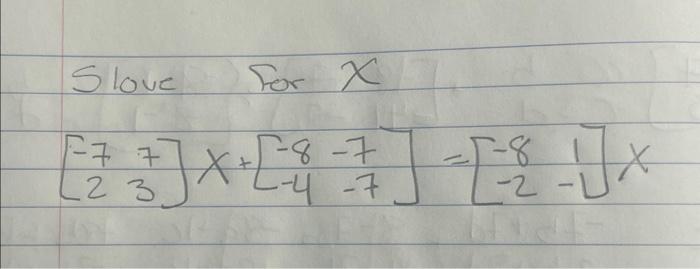 Slove for X
[-7 7
2 3] X + [-8 -7
-4 -7] = [-8 1
-2 -1] X